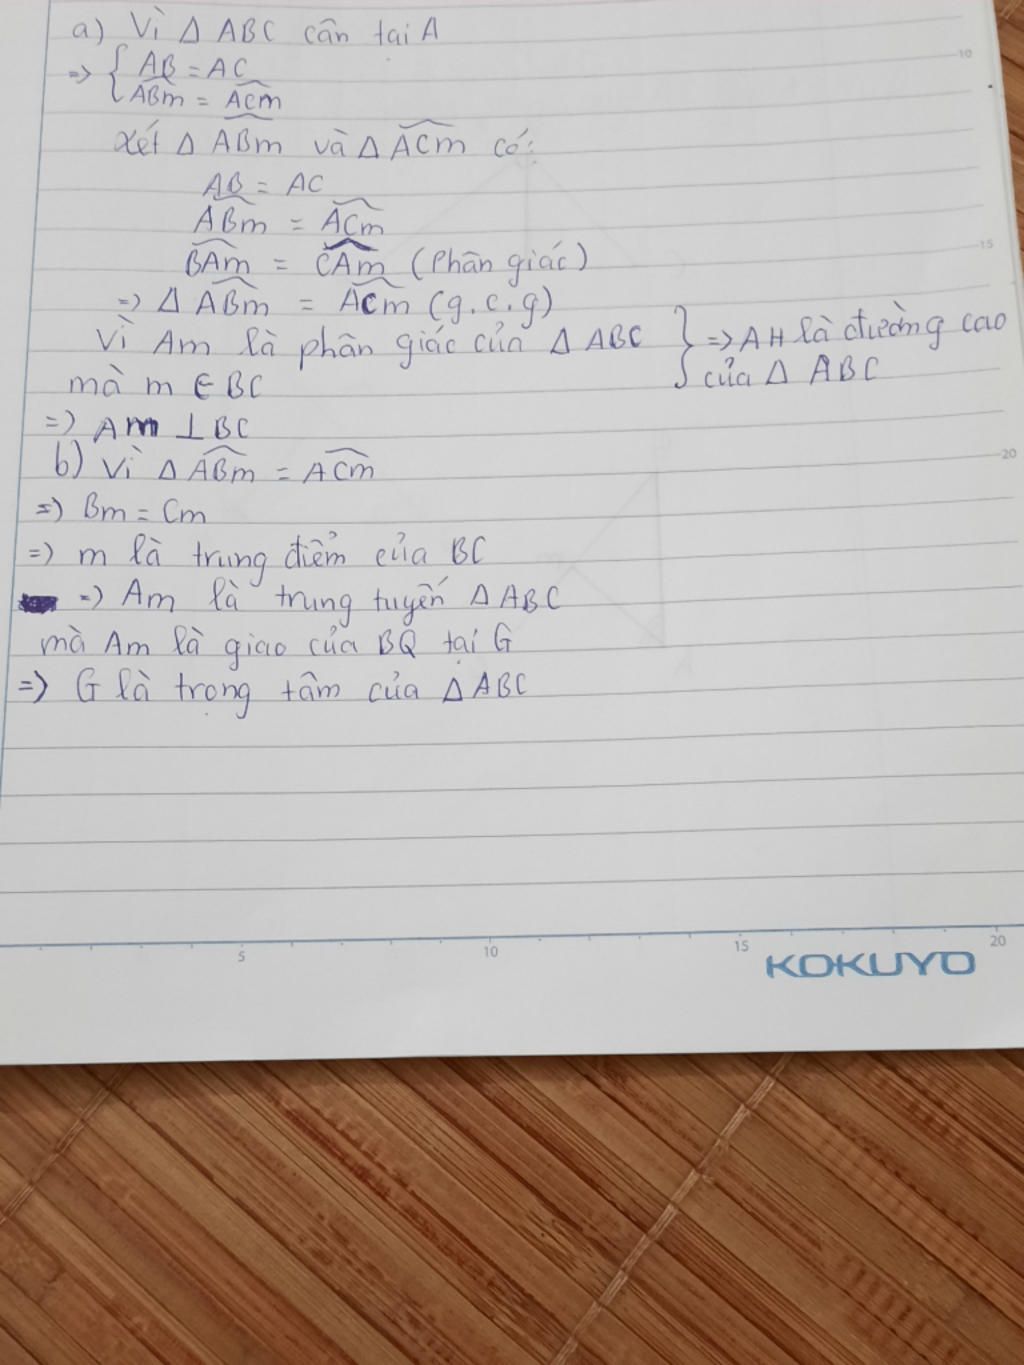 a) Vì Δ ABC cân tại A
=> { AB = AC
ABm = ACm
Xét Δ ABm và Δ ACm có:
AB = AC
ABm = ACm
BAm = CAm (Phân giác)
=> Δ ABm = ACm (g.c.g)
Vì Am là phân giác của Δ ABC } => AH là đường cao
mà m ∈ BC của Δ ABC
=> Am ⊥ BC
b) Vì Δ ABm = ACm
=> Bm = Cm
=> m là trung điểm của BC
=> Am là trung tuyến Δ ABC
mà Am là giao của BQ tại G
=> G là trọng tâm của Δ ABC
10
15
20
5 10 15 20
KOKUYO